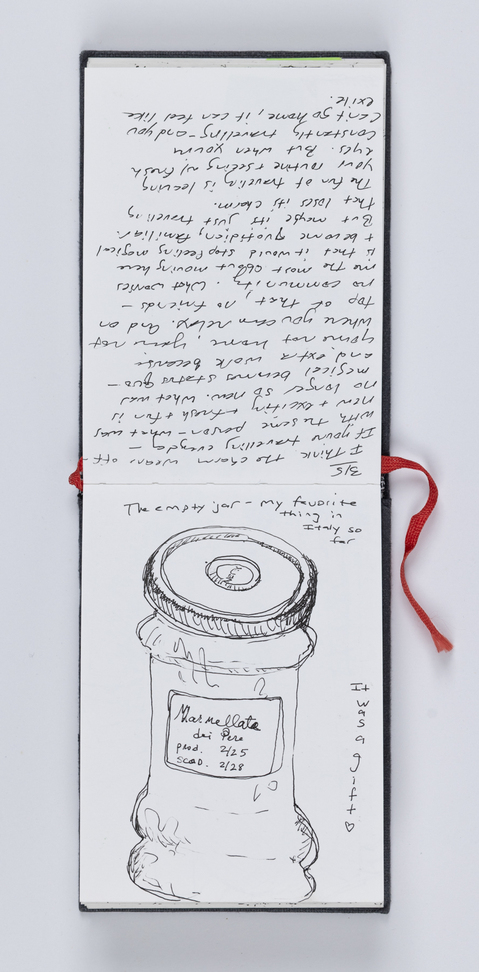 3/5
I think the charm wears off
If you're travelling everyday –
with the same person – what was
new + exciting + fresh + fun is
no longer so new. What was
magical becomes status quo –
and extra work because
you're not home, you're not
where you can relax. And on
top of that, no friends –
no community. What worries
me the most about moving here
is that it would stop feeling magical
+ become quotidien, familiar.
But maybe its just traveling
that loses its charm.
The fun of traveling is leaving
your routine + seeing w/ fresh
eyes. But when you're
constantly travelling – and you
can't go home, it can feel like
exile.
The empty jar – my favorite
thing in
Italy so
far
Marmellata
dei Pere
prod. 2/25
scad. 2/28
It was a gift ♡